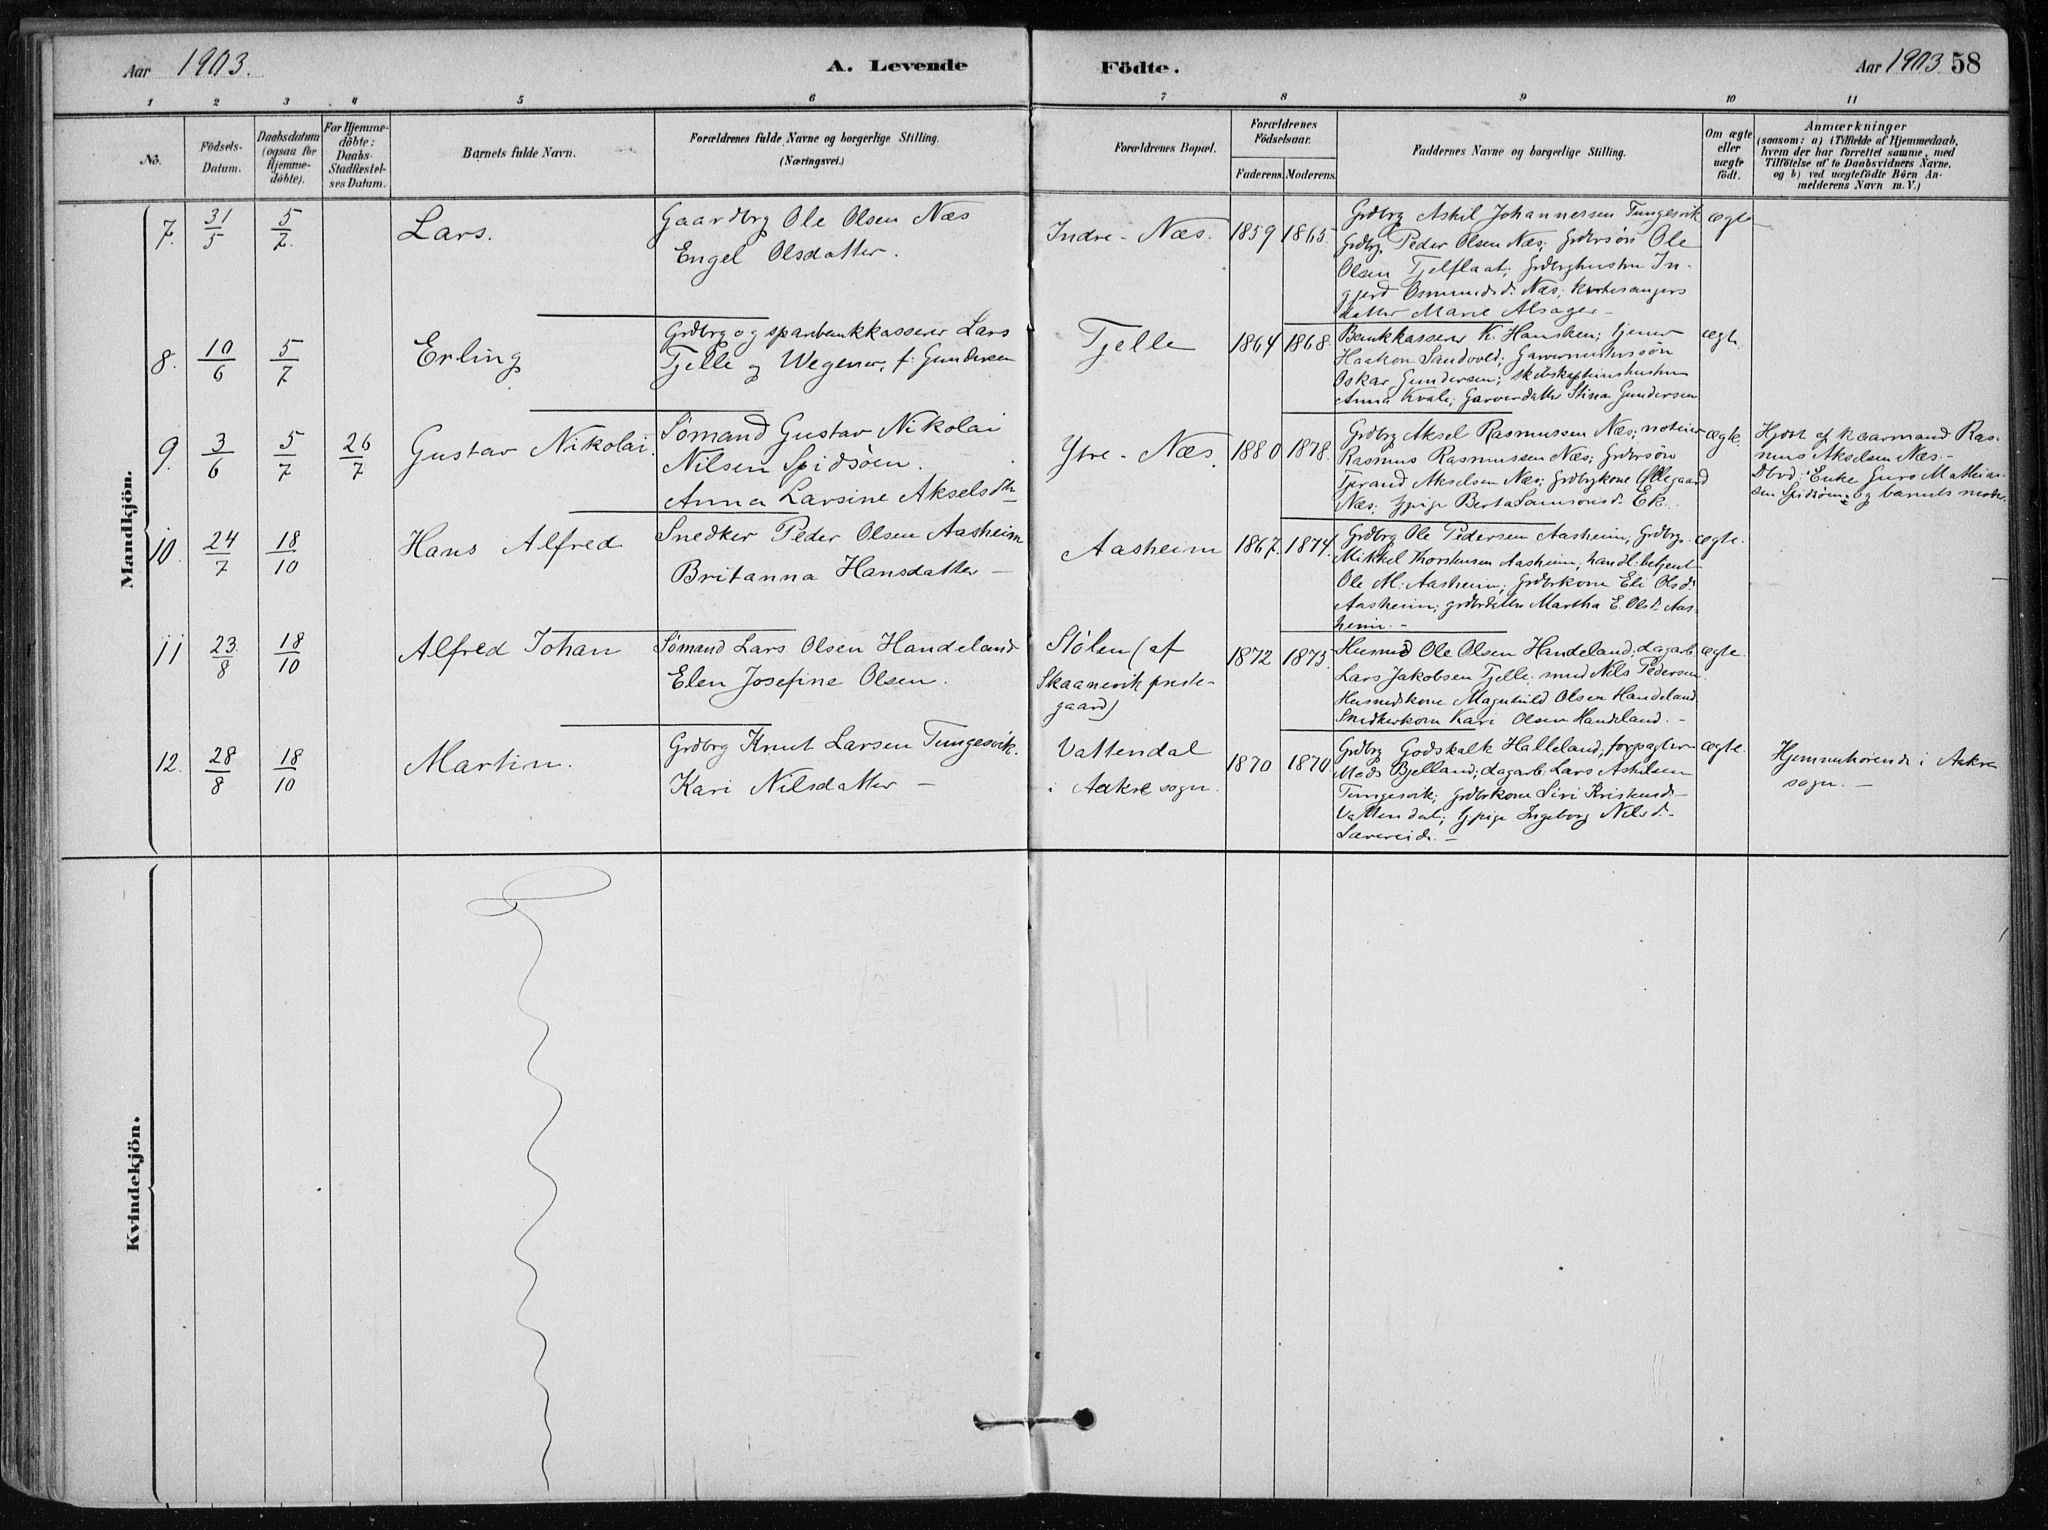 Aar 1903.
A. Levende
Födte.
Aar 1903 58
1 2 3 4 5 6 7 8 9 10 11
No.
Födsels-
Datum.
Daabsdatum
(ogsaa for
Hjemme-
döbte).
For Hjemme-
döbte:
Daabs-
Stadfæstel-
ses Datum.
Barnets fulde Navn.
Forældrenes fulde Navne og borgerlige Stilling.
(Næringsvei.)
Forældrenes Bopæl.
Forældrenes
Födselsaar.
Faderens. Moderens.
Faddernes Navne og borgerlige Stilling.
Om ægte
eller
uægte
födt.
Anmærkninger
(saasom: a) i Tilfælde af Hjemmedaab,
hvem der har forrettet samme, med
Tilföielse af to Daabsvidners Navne,
og b) ved uægtefödte Börn An-
melderens Navn m. V.)
Mandkjön.
7. 31/5 5/7. Lars.
Gaardbrg Ole Olsen Næs
Engel Olsdatter.
Indre-Næs. 1859 1865.
Grdbrg Askil Johannessen Tungesvik
Grdbrg Peder Olsen Næs; Grdbrsøn Ole
Olsen Tjelflaat; Grdbrghustru In-
gjerd Osmundsd. Næs; Kirkesangers
datter Marie Alsager-
ægte
8. 10/6 5/7 Erling
Grdbrg og sparebankkasserer Lars
Tjelle og Wegener, f: Gundersen
Tjelle 1864 1868.
Bankkasserer K. Hansken; tjener
Haakon Sandvold; Garvermestersøn
Oskar Gundersen;
Anna Kvale; Garverdatter Stina Gundersen
ægte
9. 3/6 5/7 26/7 Gustav Nikolai.
Sømand Gustav Nikolai
Nilsen Spidsøen.
Anna Larsine Akselsdtr
Ytre-Næs. 1880 1878.
Grdbrg Aksel Rasmussen Næs;
Rasmus Rasmussen Næs; Grdbrsøn
Tjerand Akselsen Næs; Grdbrgkone Øllegaard
Næs; tjpige Berta Samsonsd. Ek.
ægte.
Hjdøbt af kaarmand Ras-
mus Akselsen Næs.-
Dbvd: Enke Guro Mathias-
sen Spidsøen og barnets moder.
10. 24/7 18/10 Hans Alfred
Snedker Peder Olsen Aasheim
Britanna Hansdatter-
Aasheim 1867. 1874.
Grdbrg Ole Pedersen Aasheim; Grdbrg
Mikkel Thorstensen Aasheim; handl.betjent
Ole M. Aasheim; Grdbrkone Eli Olsd.
Aasheim; grdbrdatter Martha E. Olsd. Aas-
heim.-
ægte.
11 23/8 18/10 Alfred Johan
Sømand Lars Olsen Handeland
Elen Josefine Olsen.
Stølen (af
Skaanevik preste-
gaard)
1872 1873.
Husmd Ole Olsen Handeland; dagarb.
Lars Jakobsen Tjelle; Nils Pedersen.
Husmdskone Magnhild Olsen Handeland
Snedkerkone Kari Olsen Handeland.-
ægte.
12. 28/8 18/10 Martin.
Grdbrg Knut Larsen Tungesvik.
Kari Nilsdatter-
Vattendal
i Aakre sogn.
1870 1870.
Grdbrg Godskalk Halleland; forpagter
Mads Bjelland; dagarb. Lars Askilsen
Tungesvik; grdbrkone Siri Kristensd.
Vattendal; tjpige Ingeborg Nilsd.
Sævereide.-
ægte
Hjemmehørende i Aakre
sogn.-
Kvindekjön.